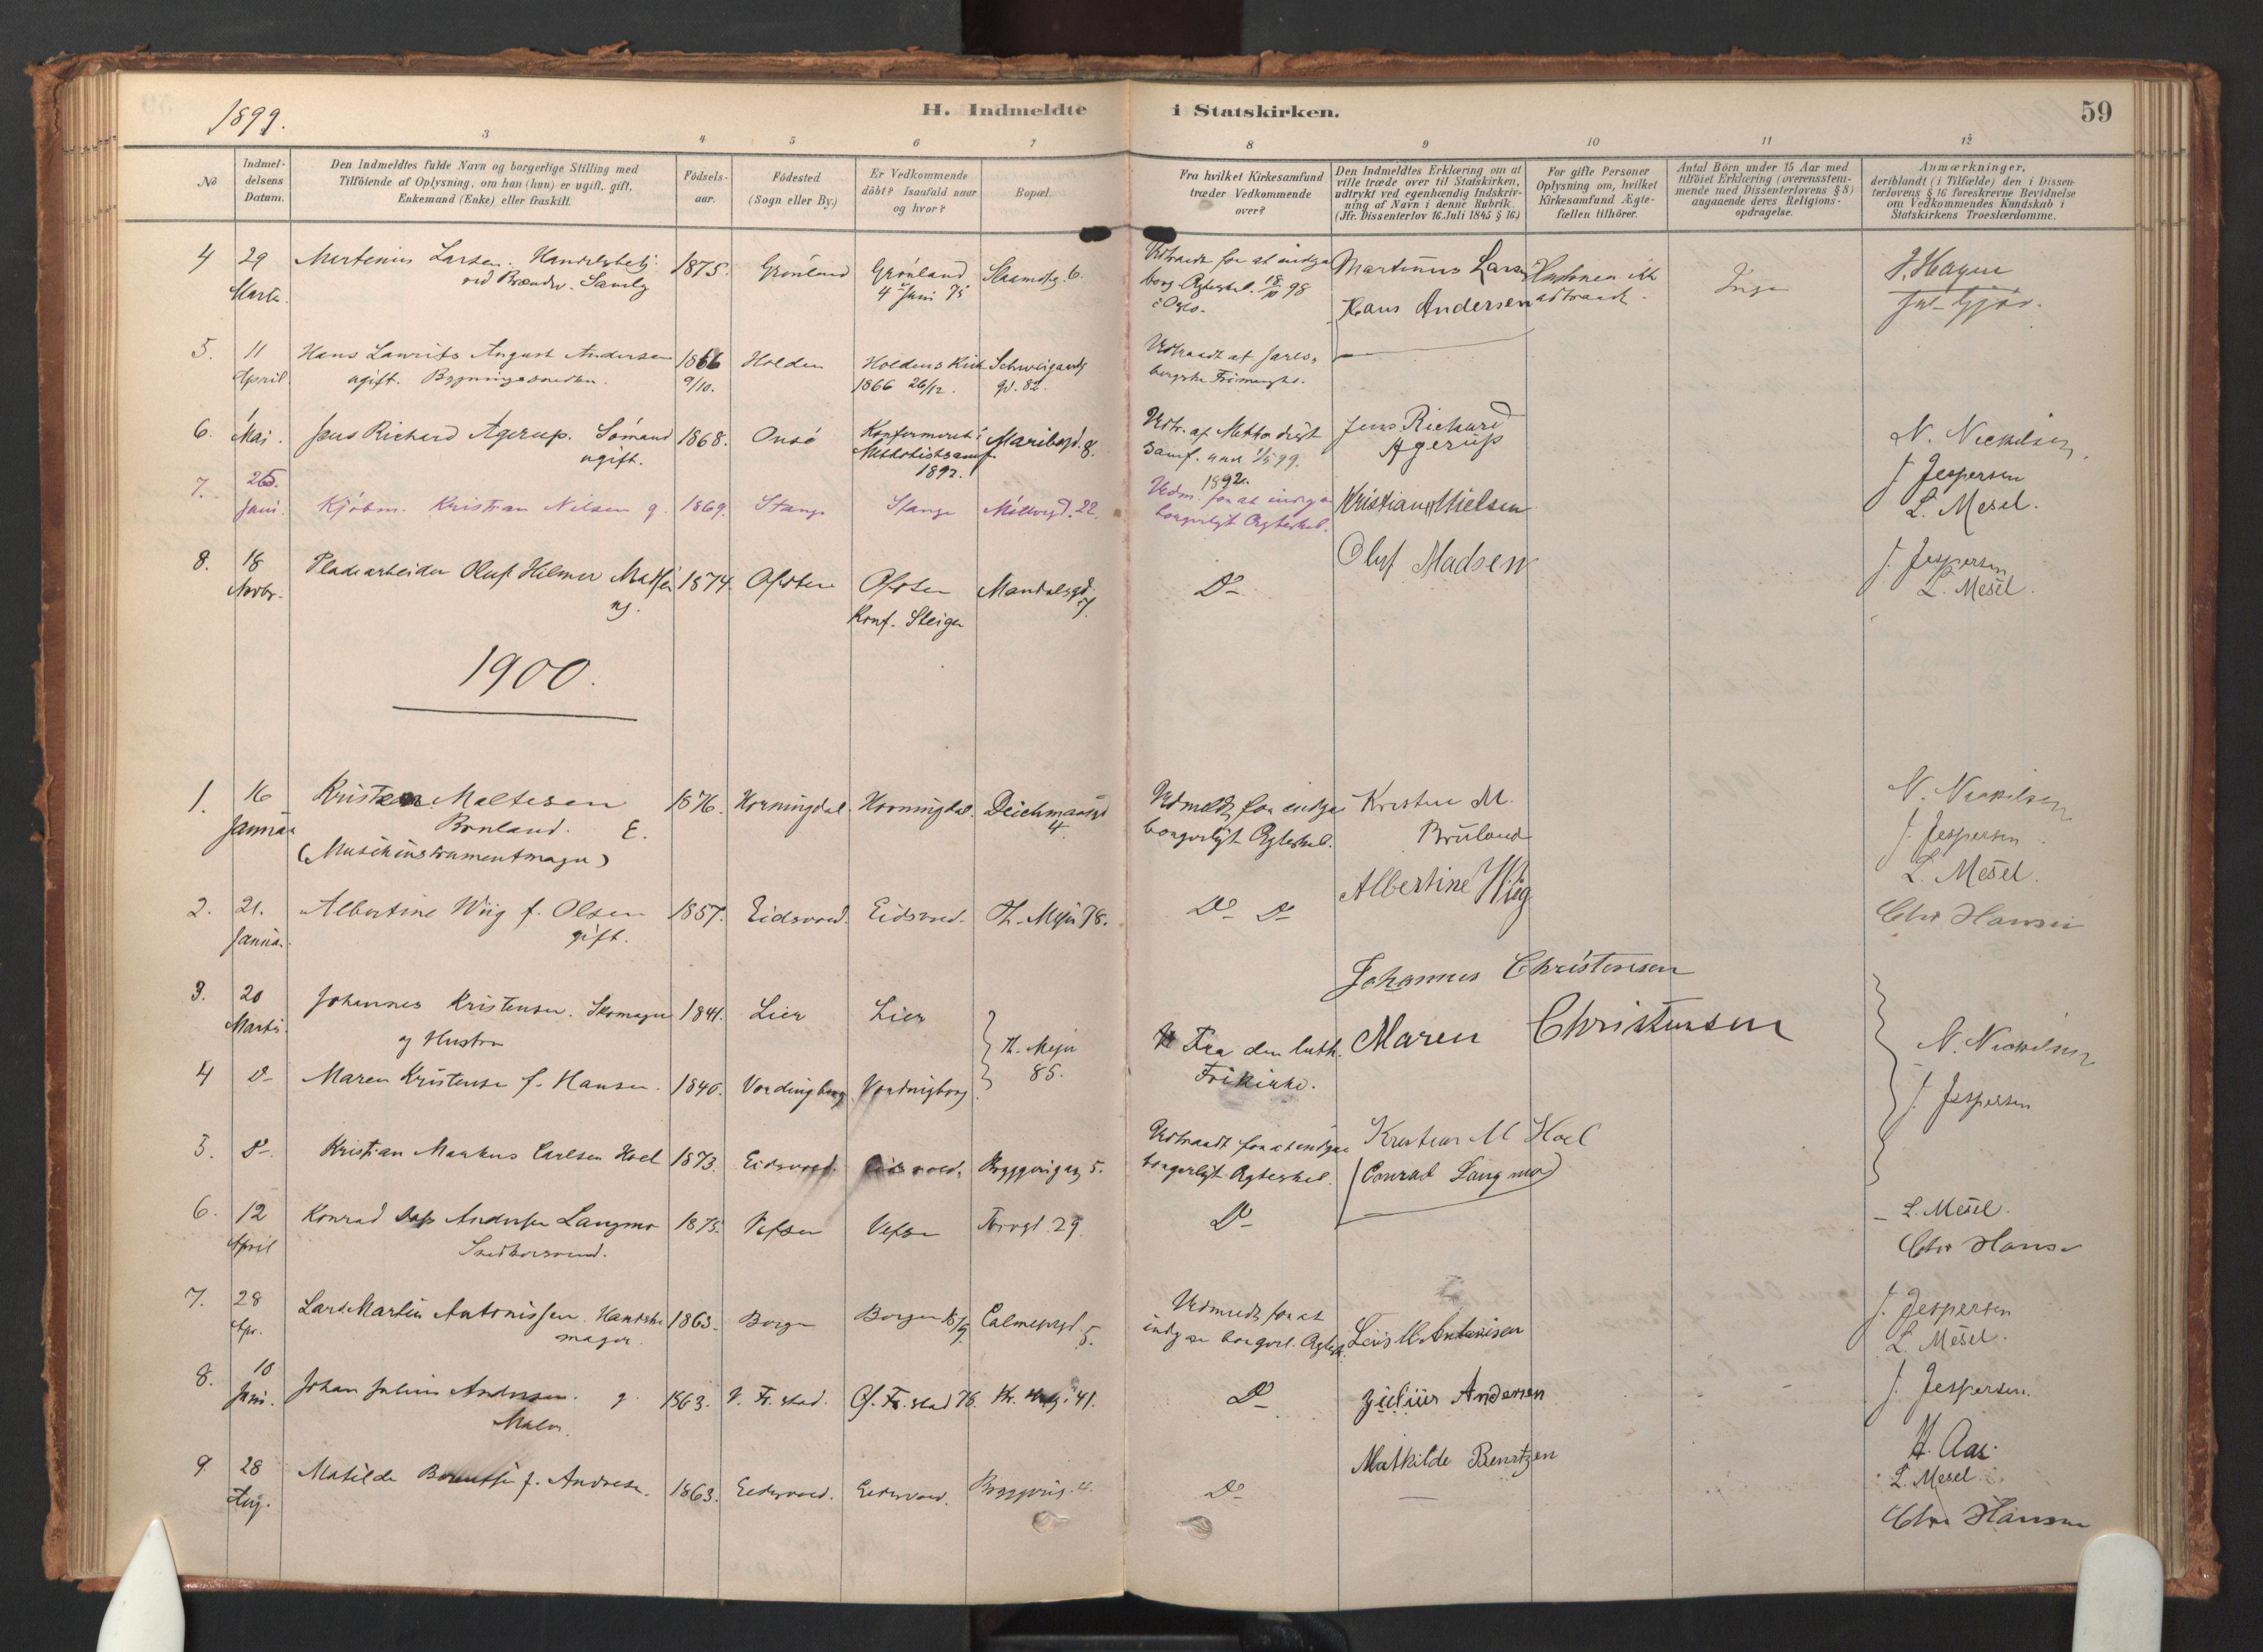 1899.
H. Indmeldte i Statskirken.
59
3 4 5 6 7 8 9 10 11 12
No
Indmel-
delsens
Datum.
Den Indmeldtes fulde Navn og borgerlige Stilling med
Tilföiende af Oplysning, om han (hun) er ugift, gift,
Enkemand (Enke) eller fraskilt.
Födsels-
aar.
Födested
(Sogn eller By.)
Er Vedkommende
döbt? Isaafald naar
og hvor?
Bopæl.
Fra hvilket Kirkesamfund
træder Vedkommende
over?
Den Indmeldtes Erklæring om at
ville træde over til Statskirken,
udtrykt ved egenhændig Indskriv-
ning af Navn i denne Rubrik.
(Jfr. Dissenterlov 16. Juli 1845 § 16.)
For gifte Personer
Oplysning om, hvilket
Kirkesamfund Ægte-
fællen tilhörer.
Antal Börn under 15 Aar med
tilföiet Erklæring (overensstem-
mende med Dissenterlovens § 8)
angaaende deres Religions-
opdragelse.
Anmærkninger,
deriblandt (i Tilfælde) den i Dissen-
terlovens § 16 foreskrevne Bevidnelse
om Vedkommendes Kundskab i
Statskirkens Troeslærdomme.
4 29 Martinius Larsen. Handelsbetj. 1875. Grønland Grønland
Marts. 4 Juni 75
Udtraadt for at indgaa
borg. Ægteskab. 18/10 98
i Oslo.
Martinius Larsen
Hustruen ikke
udtraadt.
Inge
J. Hagen
5. 11 Hans Laurits August Andersen 1866 Holden Holdens Kirk Schweigaards
April ugift. Bygningssnedker. 9/10. 1866 26/12. gd. 82.
Udtraadt af Jarls-
bergske Frimenigh.
Hans Andersen
6. 1 Mai. Jens Richard Agerup. Sömand 1868. Onsö Konfirmeret i Maribogd. 8.
ugift. Methodistsamf.
1892.
Udtr. af Methodist
Samf. 1/5 99.
Jens Richard
Agerup
N. Nickelsen
J. Jespersen
7. 25 Juni. Kjöbm. Kristian Nilsen g. 1869. Stange Stange Möllergd. 22.
1892.
Udm. for at indgaa
borgerligt Ægteskab.
Kristian Nielsen
L. Mesel.
8. 18 Pladearbeider Oluf Hilmer Madsen 1874. Ofoten Ofoten Mandalsgd.
Novbr. ug. Konf. Steigen 7.
Do
Oluf Madsen
J. Jespersen
L. Mesel.
1900.
1. 16 Maltesen 1876. Hornindal. Hornindal. Deichmansgd
Januar Bruland. E. 4.
(Musikinstrumentmager)
Udmeldt for indgaa
borgerligt Ægteskab.
Kristen M.
Bruland
N. Nickelsen
J. Jespersen
L. Mesel.
2. 21. Albertine Wiig f. Olsen 1857. Eidsvold. Eidsvold. Th. Meyer 78.
Januar. gift.
Do Do
Albertine Wiig
Chr Hansen
3. 20 Johannes Kristensen. Skomager 1841. Lier Lier
Marts. og Hustru
Th. Meyer
85.
Johannes Christensen
4 Do Maren Kristensen f. Hansen. 1840. Vordingborg Vordingborg
Fra den luth.
Frikirke.
Maren Christensen
N. Nickelsen
J. Jespersen
5. Do Kristian Markus Carlsen Hoel 1873. Eidsvold. Eidsvold. Bryggerigd 5.
Udtraadt for at indgaa
borgerligt Ægteskab.
Kristian M Hoel
6. 12 Konrad Andersen Langmo 1875. Vefsen Vefsen Torvgd. 29.
April Snedkersvend.
Do
Conrad Langmo
L. Mesel.
Chr Hansen
7. 28 Lars Martin Antonissen. Handske 1863. Borge Borge Calmeyergd.
Apr. mager. 5.
Udmeldt for at
indgaa borgerl. Ægtesk.
Lars M. Antonisen
J. Jespersen
L. Mesel.
8. 10 Johan Julius Andersen. g. 1863. V. Fr.stad. Gl. Fr.stad 76. 41.
Juni. Maler.
Do
Julius Andersen
J. Jespersen.
9. 28 Matilde Berentsen f. Andresen. 1863. Eidsvold. Eidsvold. Bryggerig. 4.
Aug.
Do
Mathilde Berntzen
H. Aas.
L. Mesel.
Chr Hansen